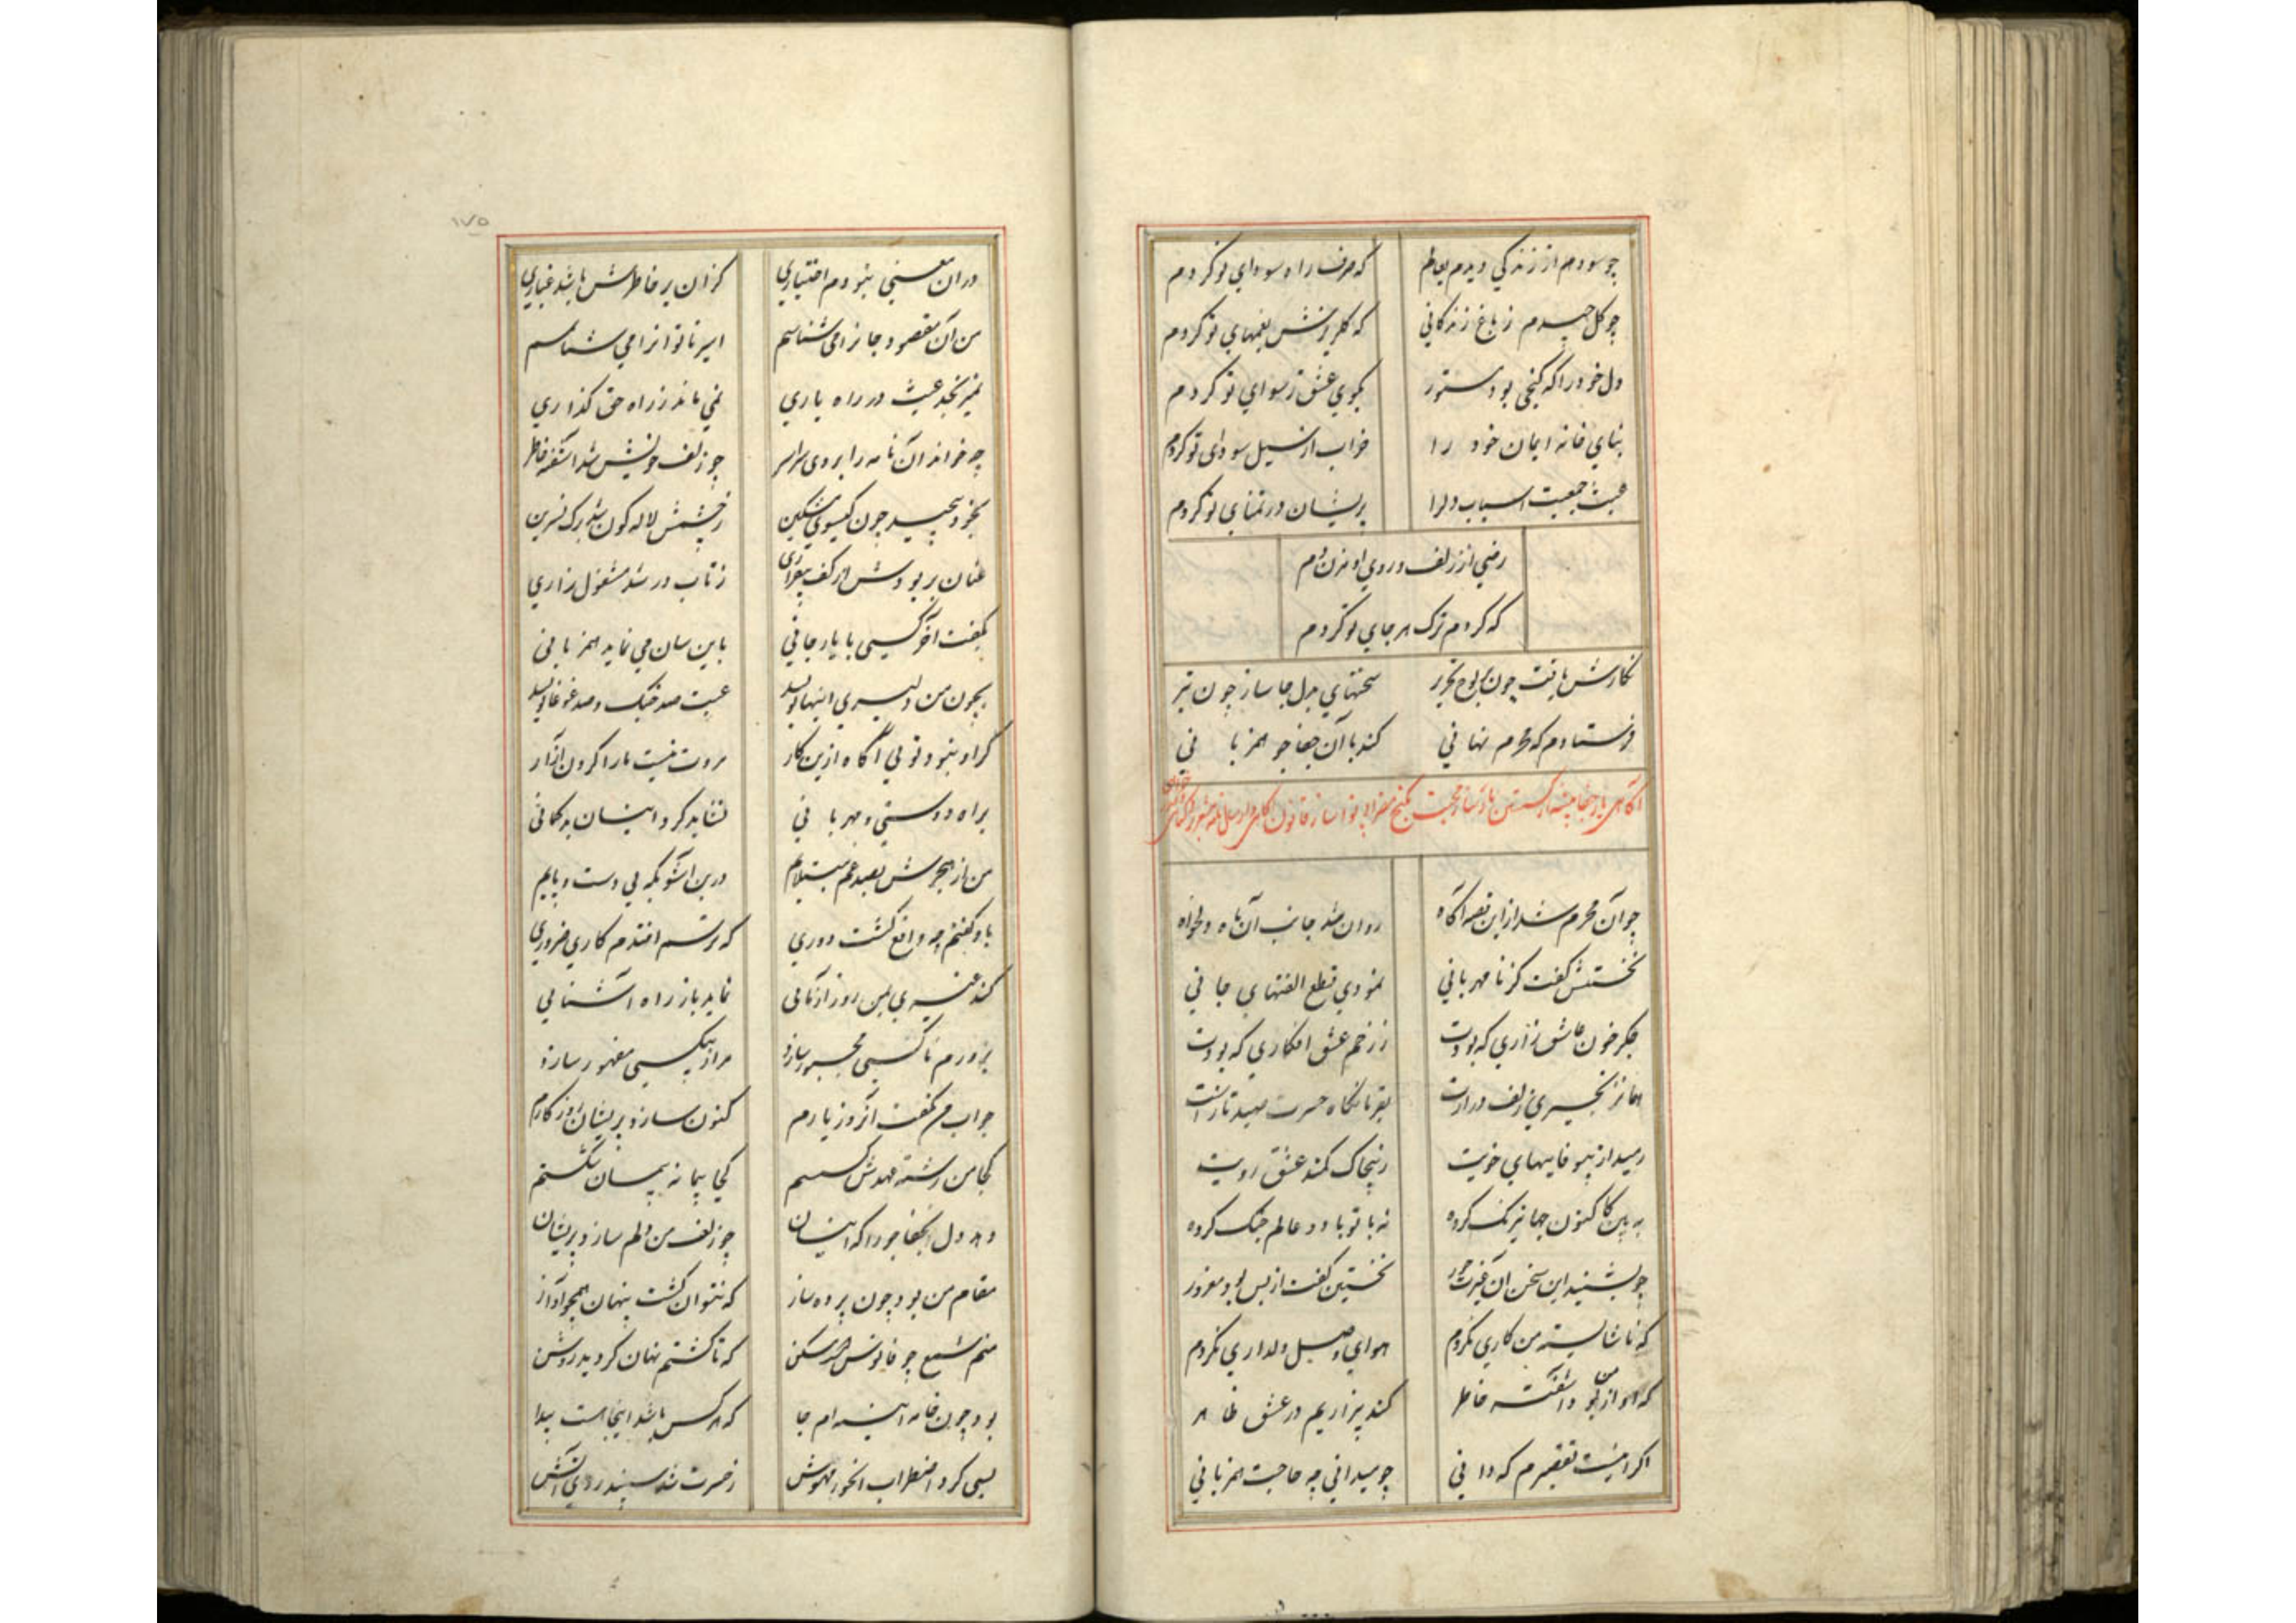 چو سودم از زندگی دیدم بعالم که صرف راه سودای تو کردم
چو گل چیدم ز باغ زندگانی که گلریزش بغمهای تو کردم
دل خود را که گنجی بود مستور بکوی عشق رسوای تو کردم
بنای خانه ایمان خود را خراب از سیل سودای تو کردم
عبث جمعیت اسباب دل را پریشان در تمنای تو کردم
رضی از زلف و روی او مزن دم
که کردم ترک هر جای تو کردم
نگارش یافت چون تحریر سخنهای بدل جا ساز چون تیر
فرستادم که محرم نهانی کند با آن جفا جو همزبانی
آگاهی یار جفا پیشه از ساز محبت
چو آن محرم شد از این قصه آگاه روان شد جانب آن ماه دلخواه
نخستش گفت کز نامهربانی نمودی قطع الفتهای جانی
جگر خون عاشق زاری که بودت ز زخم عشق افکاری که بودت
همان زنجیری زلف درازت بقربانگاه حسرت صید نازت
رمید از بیوفاییهای خویت ز پیچاک کمند عشق رویت
به بین کاکنون جهانی تنک کرده نه با تو با دو عالم جنک کرده
چو بشنید این سخن آن غیرت حور نخستین گفت از بس بود مغرور
که ناشایسته من کاری نکردم هوای وصل دلداری نکردم
که او از من بود آشفته خاطر کند بیزاریم در عشق ظاهر
اگر اینست تقصیرم که دانی چو میدانی چه حاجت همزبانی
در آن معنی نبودم اختیاری کزان بر خاطرش باشد غباری
من آن مقصود جانرا می شناسم اسیر ناتوانرا می شناسم
نمیرنجد عبث در راه یاری نمی ماند ز راه حق گذاری
چو خواند آن نامه را بر وی سراسر چو زلف خویش شد آشفته خاطر
بخود پیچید چون گیسوی مشکین ز چشمش لاله گون شد برک نسرین
عنان بربودش از کف بیقراری ز تاب در شد مشغول زاری
بگفت آخر کسی با یار جانی باین سان می نماید همزبانی
بچون من دلبری اینها نویسد عبث صد جنک و صد غوغا نویسد
گر او نبود تویی آگاه ازین کار مروت نیست ما را کردن آزار
براه دوستی و مهربانی نشاید کرد اینسان بدگمانی
من از هجرش بصد غم مبتلایم درین آشوبگه بی دست و پایم
باو گفتم چو واقع گشت دوری که ترسم افتدم کاری ضروری
کند غیری بمن زور آزمائی نماید باز راه آشنایی
بزورم ناکسی مجبور سازد مرا از بیکسی مقهور سازد
جواب من نگفت آنروز یارم کنون سازد پریشان روزگارم
کجا من رشته عهدش گسستم کجا پیمانه پیمان شکستم
دهد دل آن جفا جو را که اینسان چو زلف من دلم سازد پریشان
مقام من بود چون پرده ساز که نتوان گشت پنهان همچو آواز
منم شمع چو فانوس است مسکن که تا گشتم نهان گردید روشن
بود چون خانه آیینه ام جا که هر کس باشد اینجا هست پیدا
بسی کرد اضطراب آنحور مهوش ز حسرت شد سپند روی آتش
۱۷۵